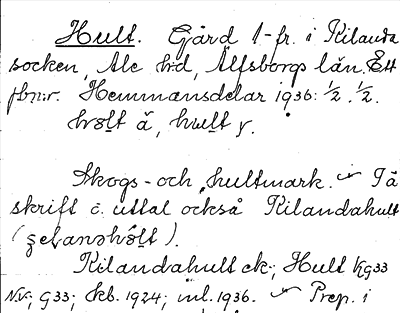 Hult. Gård 1-fr. i Kilanda
socken, Ale hd, Älfsborgs län. Ett
fbnr. Hemmansdelar 1936: 1/2. 1/2.
hult y.
Skogs- och hultmark. I å
skrift o. uttal också Kilandahult
Kilandahult ek.; Hult
G33; Ekb. 1924; inl. 1936. Prep. i